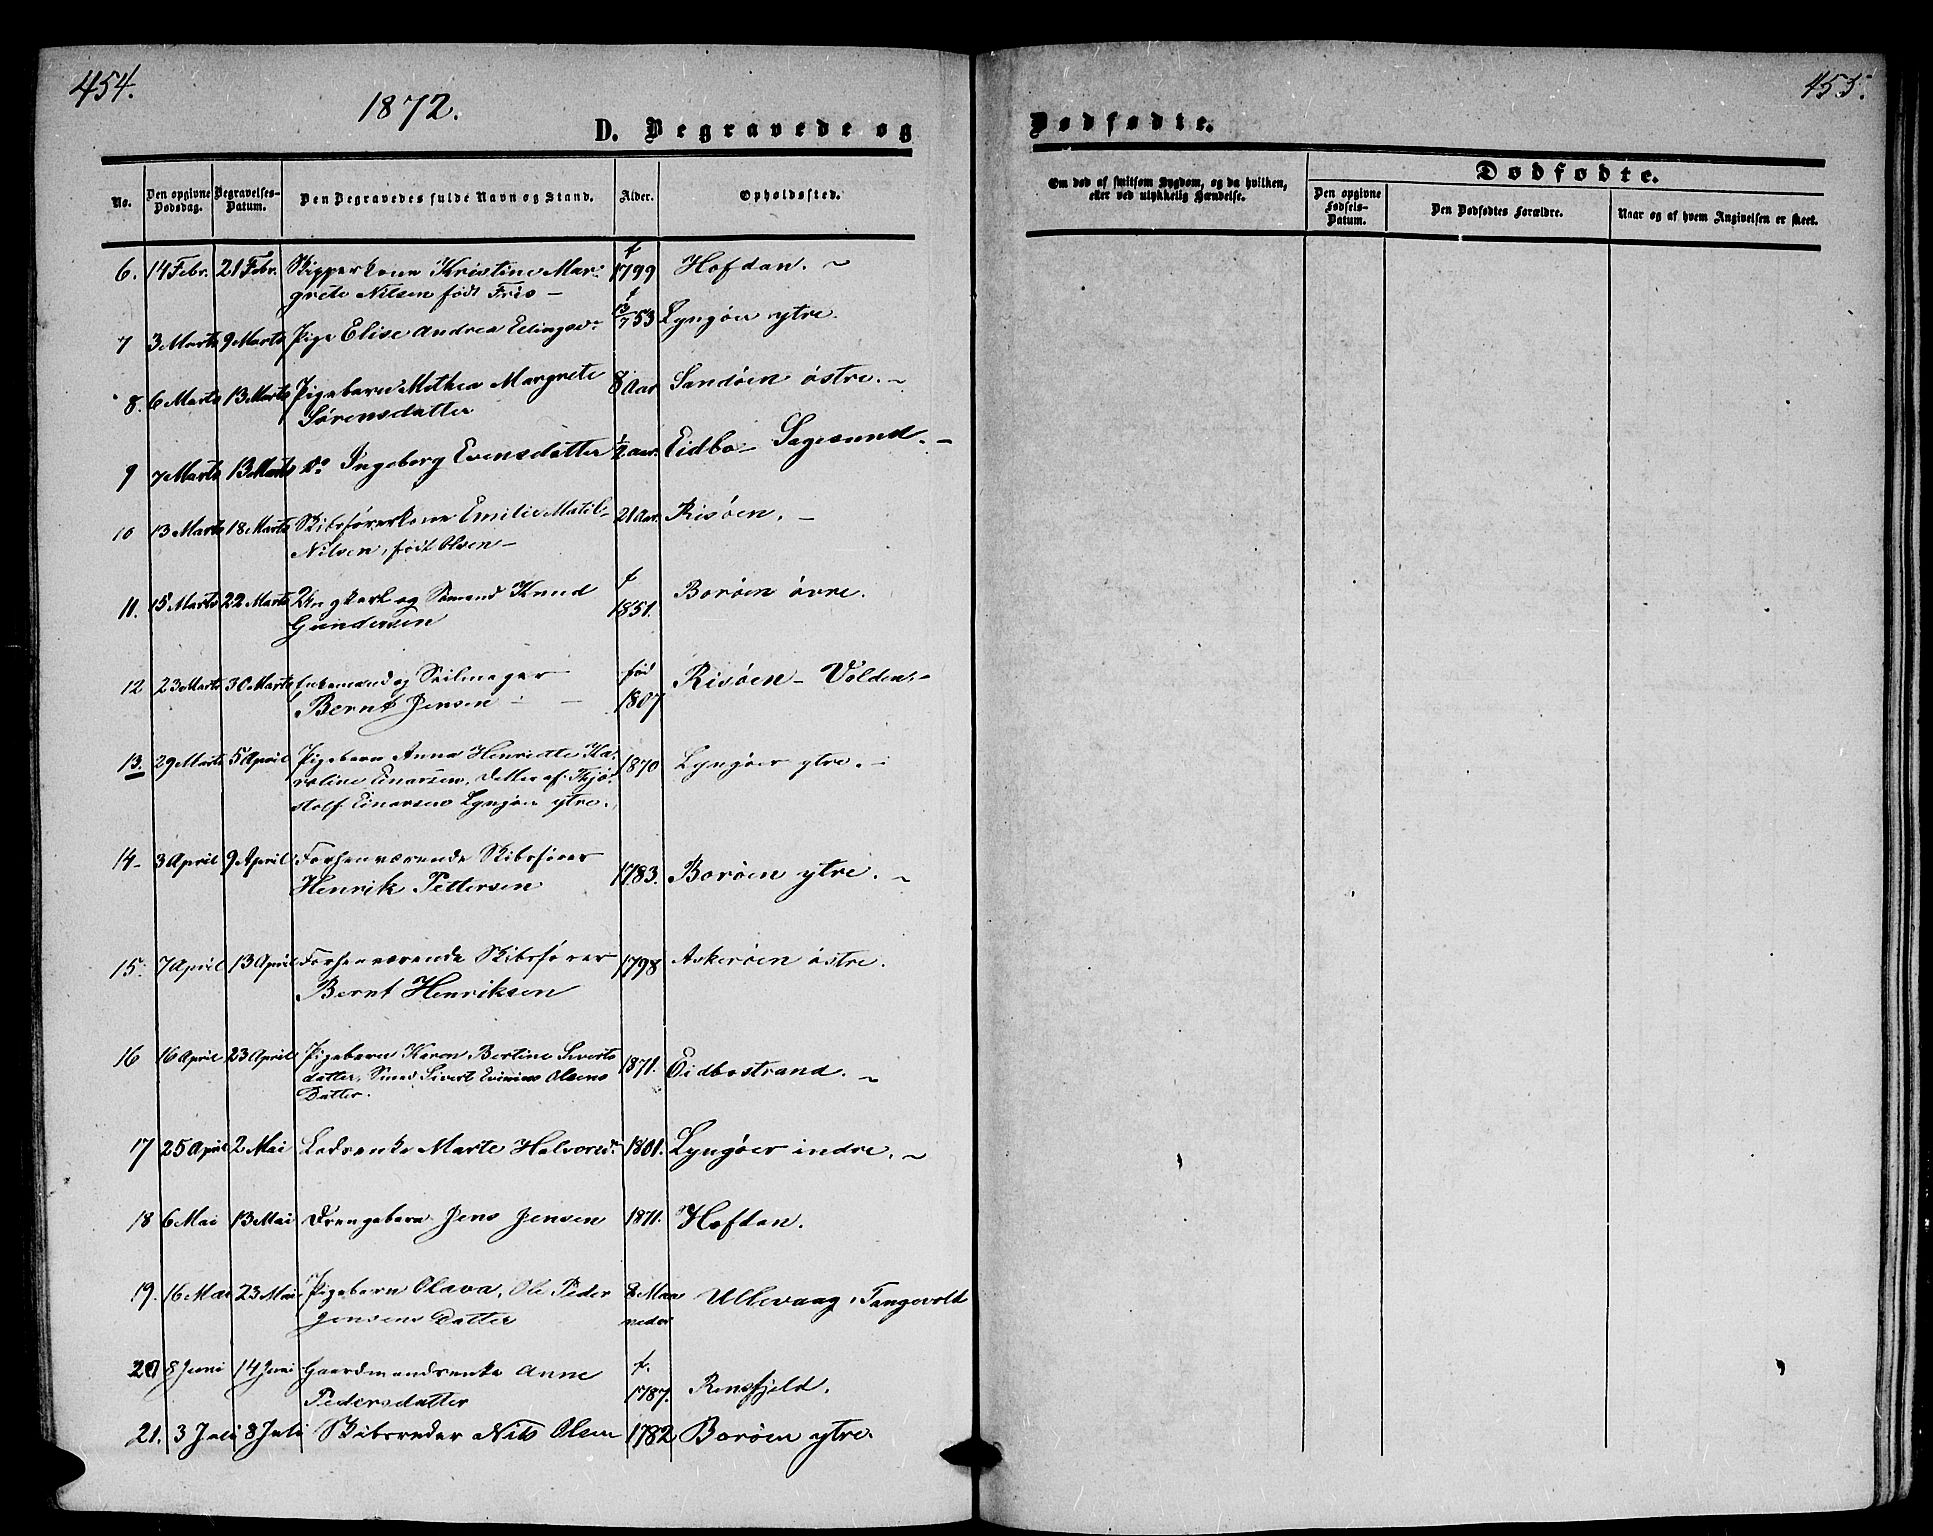 454.
1872.
D. Begravede og
No.
Den opgivne Dødsdag.
Begravelses-Datum.
Den Begravedes fulde Navn og Stand.
Alder.
Opholdssted.
6. 14 Febr. 21 Febr. Skipperkone Kristine Mar- f 1799 Hofdan.
grete Nilsen født Friis
7 3 Marts 9 Marts Pige Elise Andrea Ellingsd. f 13/7 53 Lyngøer ytre.
8. 6 Marts 13 Marts Pigebarn Mathea Margrete 8 Aar Sandøen østre.
Sørensdatter
9 7 Marts 13 Marts Do Ingeborg Evensdatter 1/2 aar. Eidbo- Sagesund.
10 13 Marts 18 Marts Skibsførerkone Emilie Matil- 21 Aar. Risøen.
Nilsen, født Olsen
11. 15 Marts 22 Marts Ungkarl og Sømand Knud f 1851. Borøen øvre.
Gundersen
12 23 Marts 30 Marts Enkemand og Seilmager fød 1807 Risøen - Volden.
Bernt Jensen
13. 29 Marts 5 April Pigebarn Anna Henriette Ka- 1870 Lyngøer ytre.
roline Einarsen, Datter af Thjo-
dolf Einarsen Lyngøer ytre.
14 3 April 9 April Forhenværende Skibsfører 1783. Borøen ytre.
Henrik Pettersen
15. 7 April 13 April Forhenværende Skibsfører 1798 Askerøen østre.
Bernt Henriksen
16 16 April 23 April Pigebarn Karen Bertine Siverts 1871. Eidbostrand.
datter, Smed Sivert Olsens
Datter.
17 25 April 2 Mai Lodsenke Marte Halvorsd. 1801. Lyngøer indre.
18 6 Mai 13 Mai Drengebarn Jens Jensen 1871. Hofdan.
19. 16 Mai 23 Mai Pigebarn Olava, Ole Peder 2 Maa Ullevaag, Tangevold
Jensens Datter neder
20 8 Juni 14 Juni Gaardmandsenke Anne f. 1787. Rensfjeld.
Pedersdatter
21. 3 Juli 8 Juli Skibsreder Nils Olsen 1782 Borøen ytre.
455.
Dødfødte.
Om død af smitsom Sygdom, og da hvilken,
eller ved ulykkelig Hændelse.
Dødfødte.
Den opgivne Fødsels-Datum.
Den Dødfødtes Forældre.
Naar og af hvem Angivelsen er skeet.